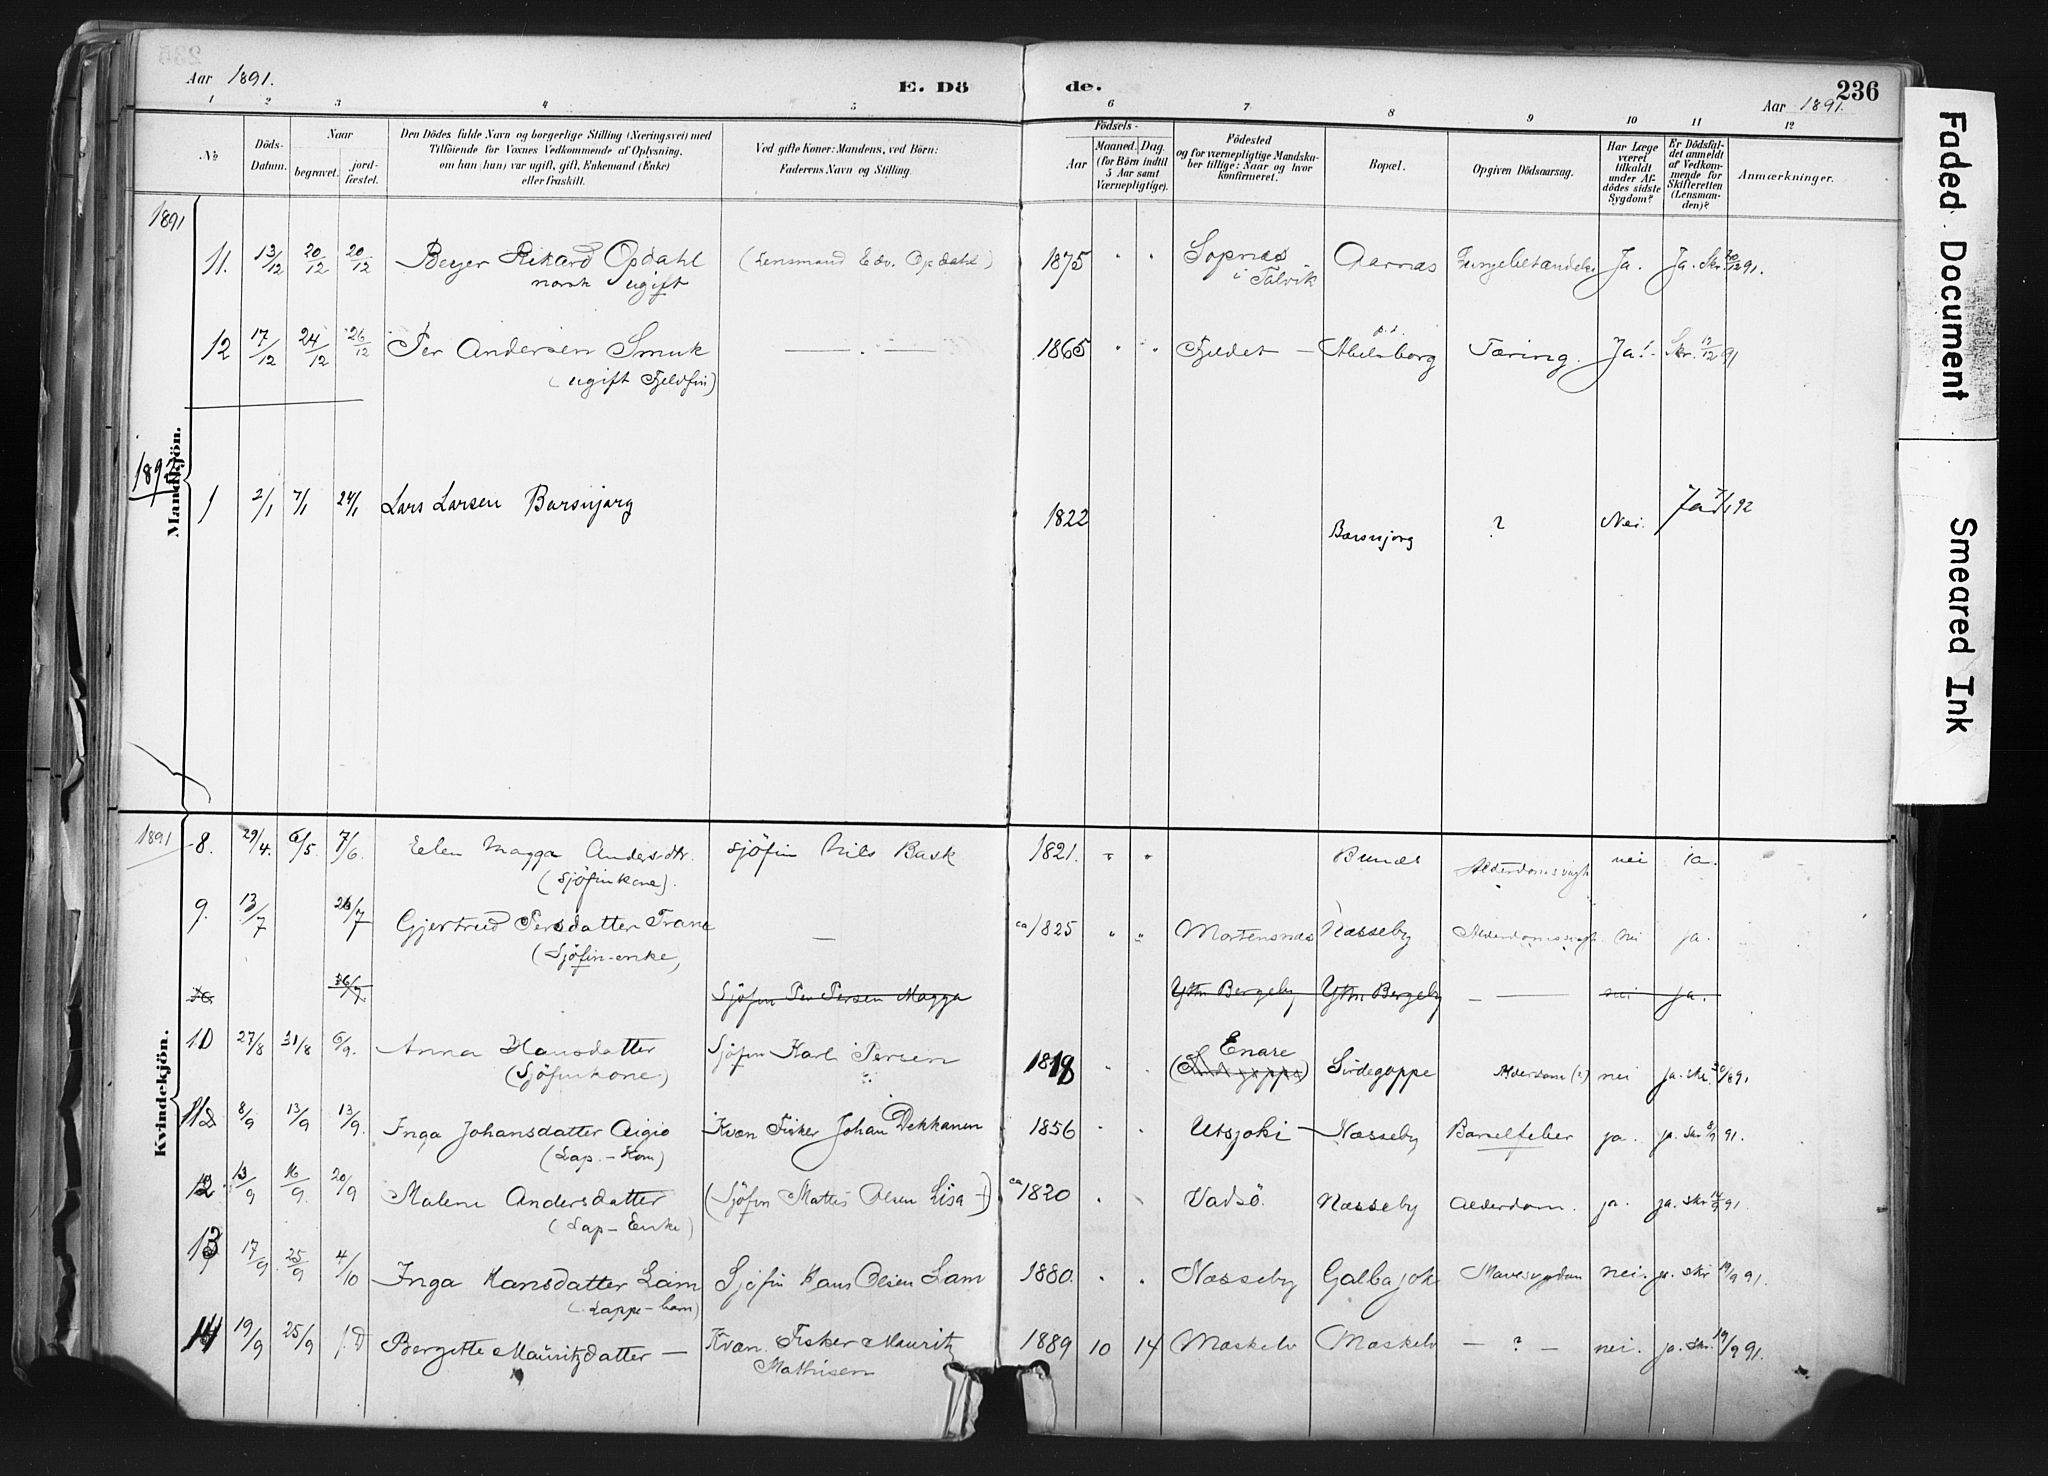 Aar 1891.
E. Dö
de.
236
Aar 1891.
1 2 3 4 5 6 7 8 9 10 11 12
№
Döds-
Datum.
Naar
begravet.
jord-
fæstet.
Den Dödes fulde Navn og borgerlige Stilling (Næringsvei) med
Tilföiende for Voxnes Vedkommende af Oplysning,
om han (hun) var ugift, gift, Enkemand (Enke)
eller fraskilt.
Ved gifte Koner: Mandens, ved Börn:
Faderens Navn og Stilling.
Födsels-
Aar
Maaned. Dag.
(for Börn indtil
5 Aar samt
Værnepligtige).
Födested
og for værnepligtige Mandska-
ber tillige: Naar og hvor
konfirmeret.
Bopæl.
Opgiven Dödsaarsag.
Har Læge
været
tilkaldt
under Af-
dödes sidste
Sygdom?
Er Dödsfal-
det anmeldt
af Vedkom-
mende for
Skifteretten
(Lensman-
den)?
Anmærkninger.
Mandkjön.
1891
11. 13/12 20/12 20/12 Beyer Rikard Opdahl (Lensmand Edv. Opdahl) 1875 " " Sopnæs Aarnæs Lungebetændelse Ja. Ja. Skr. 20/12 91.
norsk ugift i Talvik
12 17/12 24/12 26/12 Per Andersen Smuk — . — 1865 " " Fjeldet — p.t. Abelsborg Tæring. Ja! Skr. 17/12 91
(ugift Fjeldfin)
1892
1 2/1 7/1 24/1 Lars Larsen Barsnjarg 1822 Barsnjarg ? Nei. Ja 7/1 92
Kvindekjön.
1891
8. 29/4. 6/5. 7/6. Eelen Magga Andersdtr. sjöfin Nils Bask 1821. " " Bunæs Alderdomssvagh nei ja.
(Sjöfinkone).
9. 13/7 26/7 Gjertrud Persdatter Trane — ca 1825 " " Mortensnæs Næsseby Alderdomssvagh. nei ja.
(Sjöfin-enke,
10 26/7 Sjöfin Per Persen Magga Yttr. Bergeby Yttr. Bergeby — — nei ja.
10 27/8 31/8 6/9. Anna Hansdatter Sjöfin Karli Persen 1818 " . Enare Sirdegoppe Alderdom (?) nei ja. skr. 30/8 91
(Sjöfinkone)
11 8/9 13/9 13/9. Inga Johansdatter Aigio Kvæn Fisker Johan Dekkanen 1856 " " Utsjoki — Næsseby Barselfeber ja. ja. Skr 8/9 91.
(Lap.-Kone)
12 13/9 16/9 20/9 Malene Andersdatter (Sjöfin Mattis Olsen Lisa †) ca 1820 . . Vadsö. Næsseby Alderdom. ja. ja. Skr 14/9 91.
(Lap-Enke)
13 17/9 25/9 4/10 Inga Hansdatter Lam Sjöfin Hans Olsen Lam 1880. . . Næsseby Galbajok Mavesygdom nei. ja. Skr 19/9 91.
(Lappe-barn)
14 19/9 25/9 Bergette Mauritzdatter — Kvæn. Fisker Mauritz 1889 10 14 Mæskelv Mæskelv — ? — nei. ja. Skr. 19/9 91.
Mathisen
Faded Document
Smeared Ink